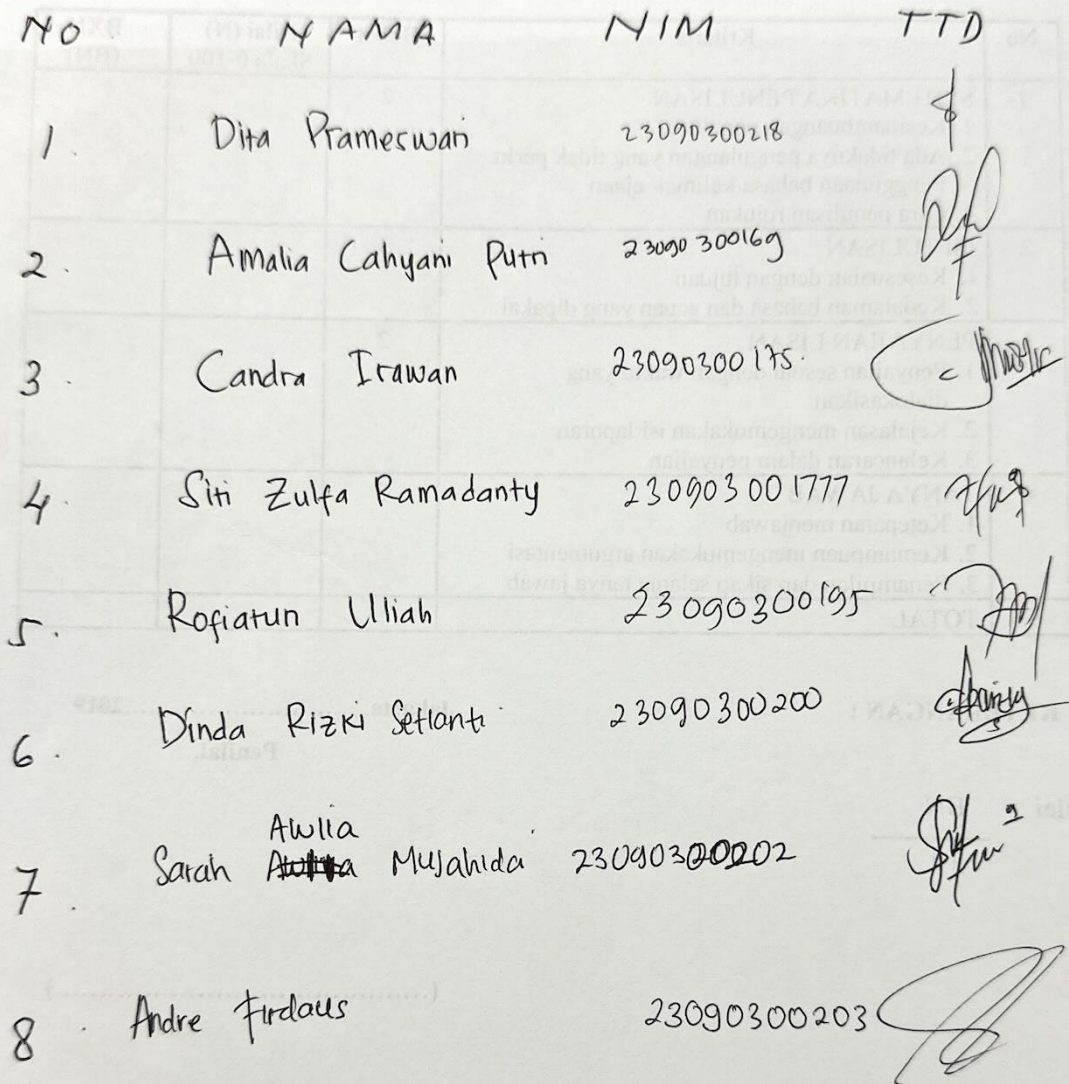 NO NAMA NIM TTD
1. Dita Prameswari 23090300218
2. Amalia Cahyani Putri 23090300169
3. Candra Irawan 23090300175.
4. Siti Zulfa Ramadanty 230903001777
5. Rofiatun Uliah 23090300195
6. Dinda Rizki Setianti 23090300200
Awlia
7. Sarah Mujahida 23090300202
8. Andre Firdaus 23090300203